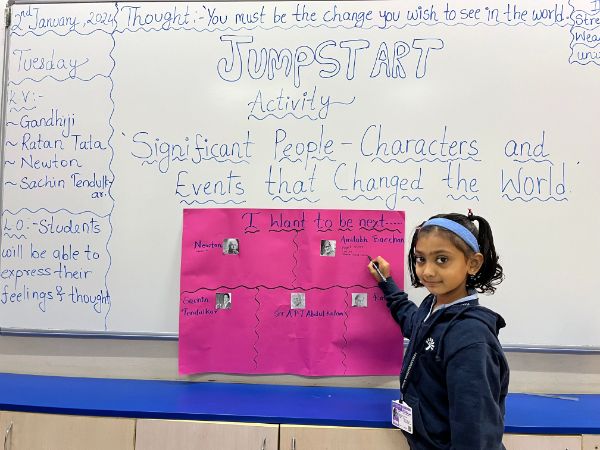 2nd January, 2024
Tuesday
K.V:-
~ Gandhiji
~ Ratan Tata
~ Newton
~ Sachin Tendulk-
ar.
L.O:- Students
will be able to
express their
feelings & thought
Thought:- "You must be the change you wish to see in the world.
JUMPSTART
Activity
'Significant People - Characters and
Events that Changed the World.'
Stre
Wea
una
I Want to be next----
Newton
Amitabh Bacchan
Sachin
Tendulkar
Sir A P J Abdul Kalam